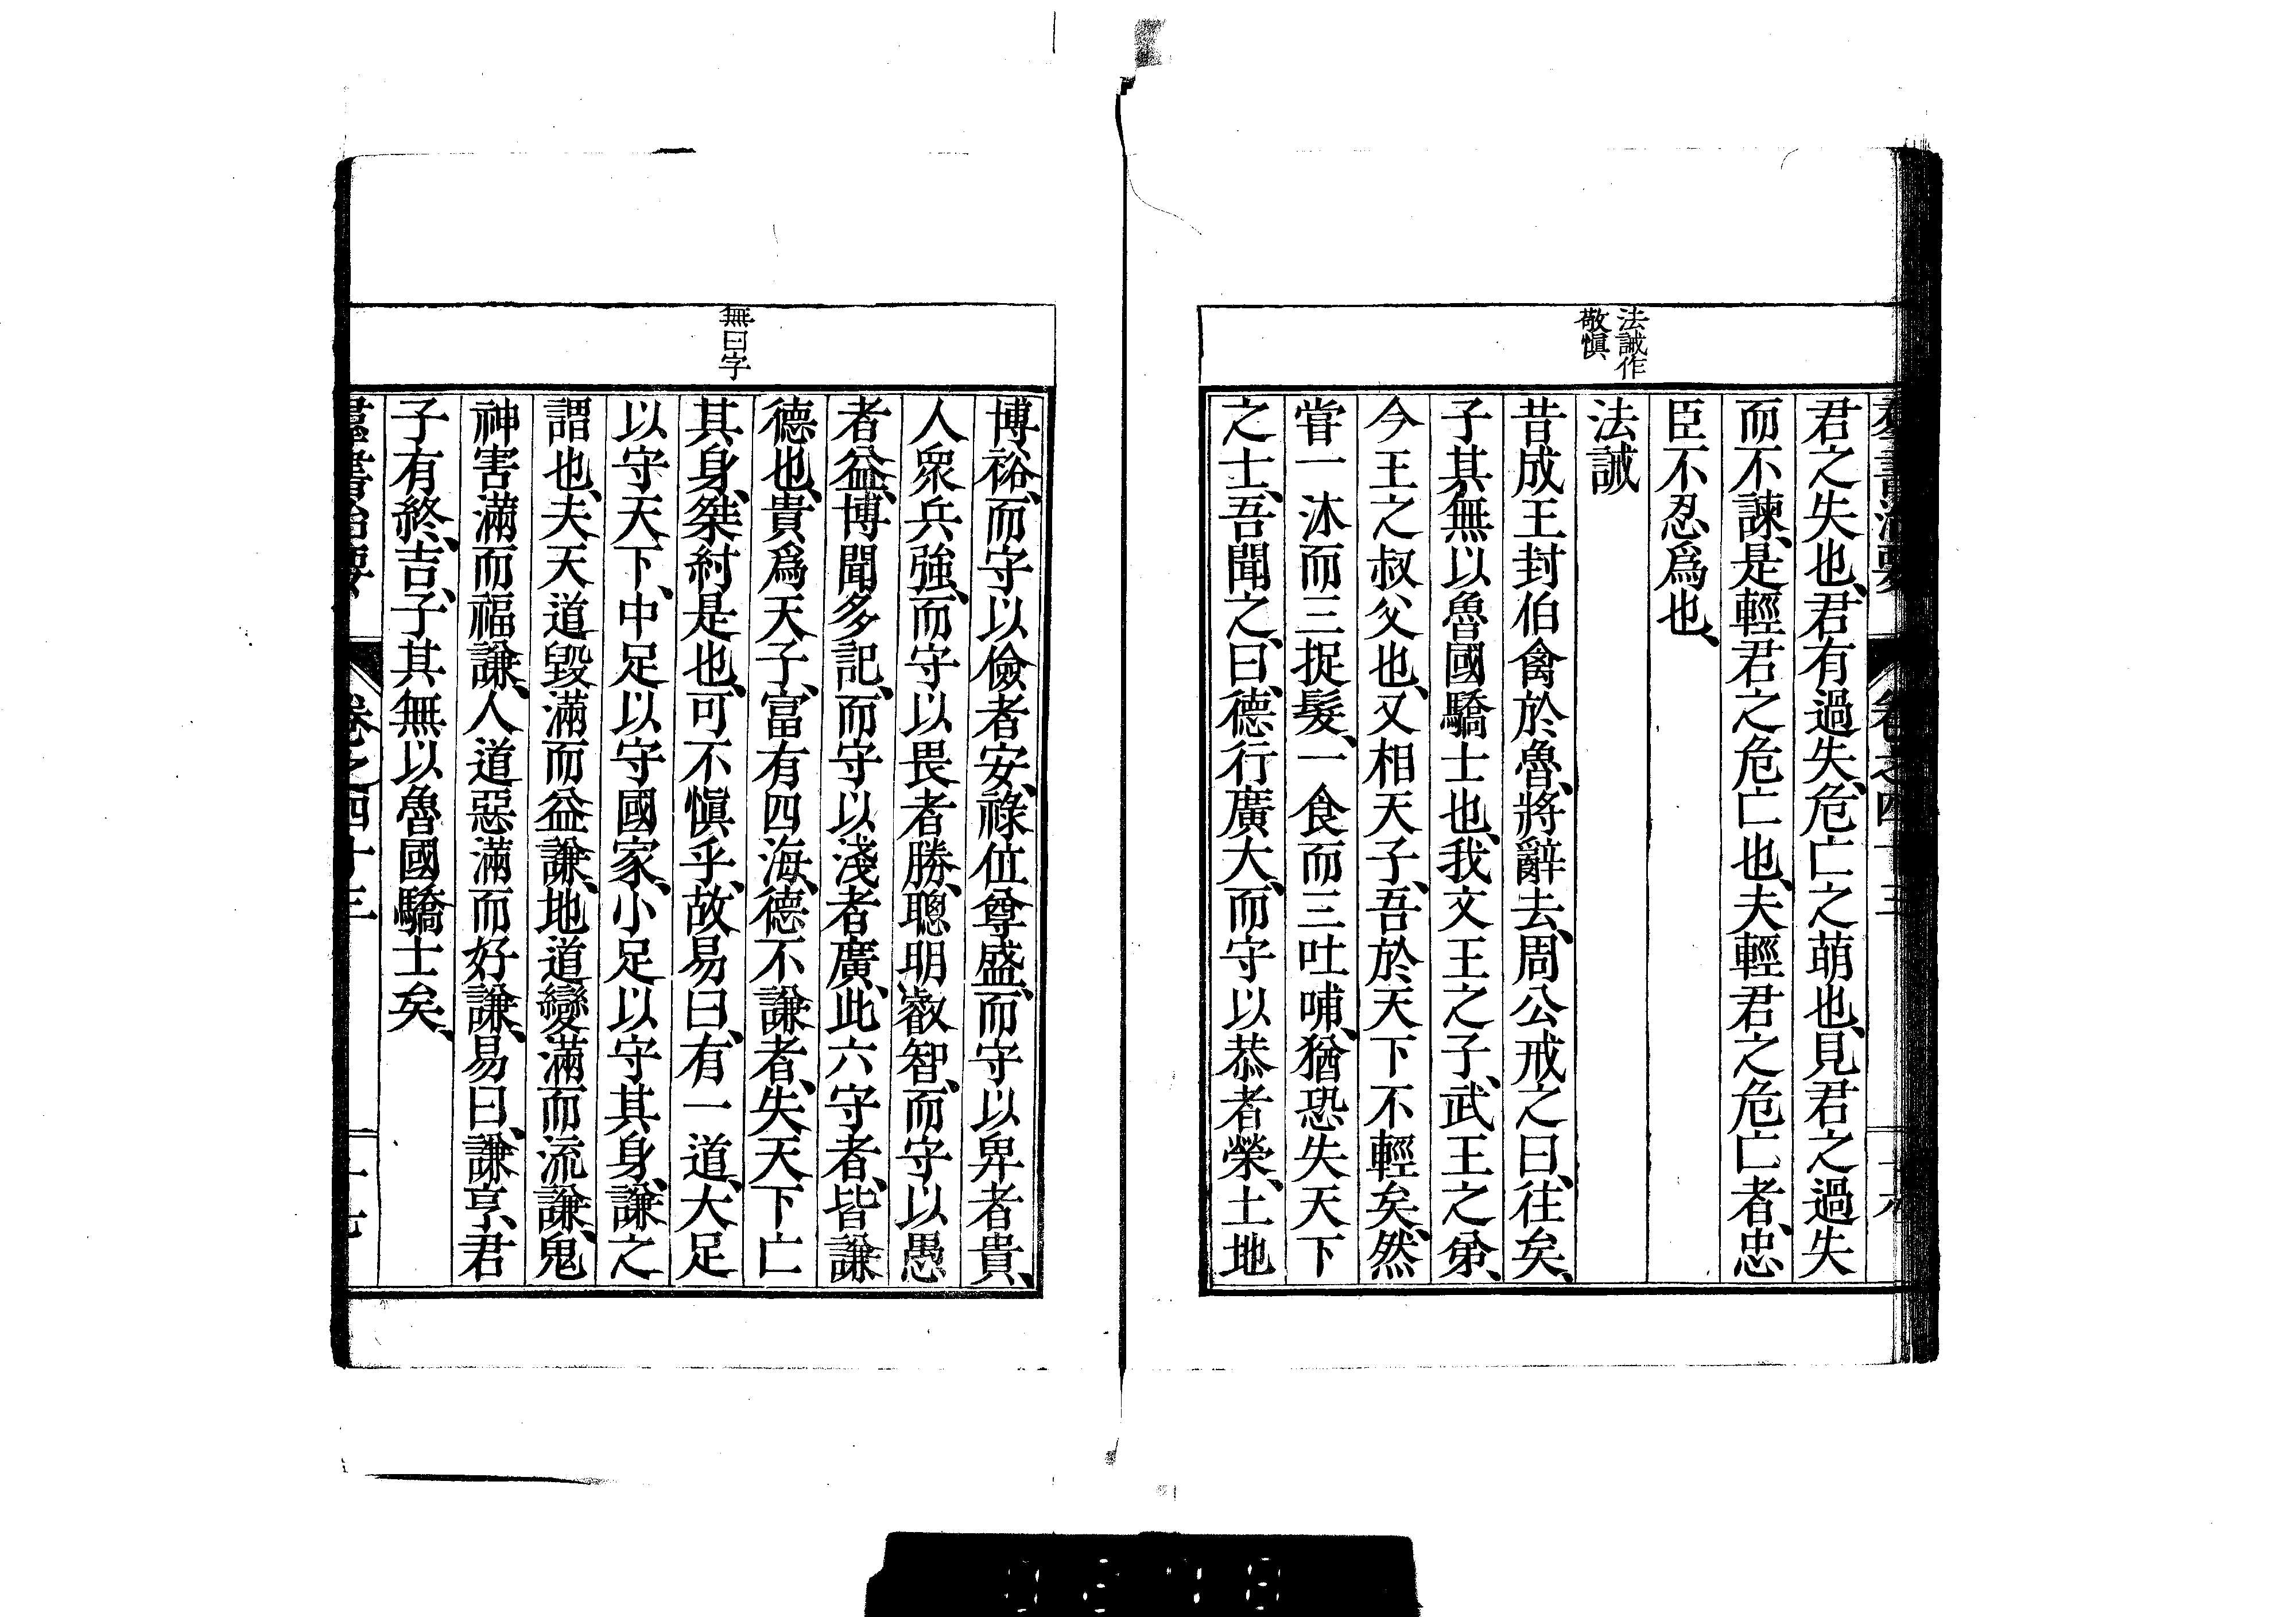 法誡作
敬愼
羣書治要 卷之四十三 十六
君之失也、君有過失、危亡之萌也、見君之過失
而不諫、是輕君之危亡也、夫輕君之危亡者、忠
臣不忍爲也、
法誡
昔成王封伯禽於魯、將辭去、周公戒之曰、往矣、
子其無以魯國驕士也、我文王之子、武王之弟、
今王之叔父也、又相天子、吾於天下不輕矣、然
嘗一沐而三捉髮、一食而三吐哺、猶恐失天下
之士、吾聞之、曰、德行廣大、而守以恭者榮、土地
無曰字
博裕、而守以儉者安、祿位尊盛、而守以卑者貴、
人衆兵強、而守以畏者勝、聰明叡智、而守以愚
者益、博聞多記、而守以淺者廣、此六守者、皆謙
德也、貴爲天子、富有四海、德不謙者、失天下亡
其身、桀紂是也、可不愼乎、故易曰、有一道、大足
以守天下、中足以守國家、小足以守其身、謙之
謂也、夫天道毀滿而益謙、地道變滿而流謙、鬼
神害滿而福謙、人道惡滿而好謙、易曰、謙亨、君
子有終、吉、子其無以魯國驕士矣、
羣書治要 卷之四十三 十七